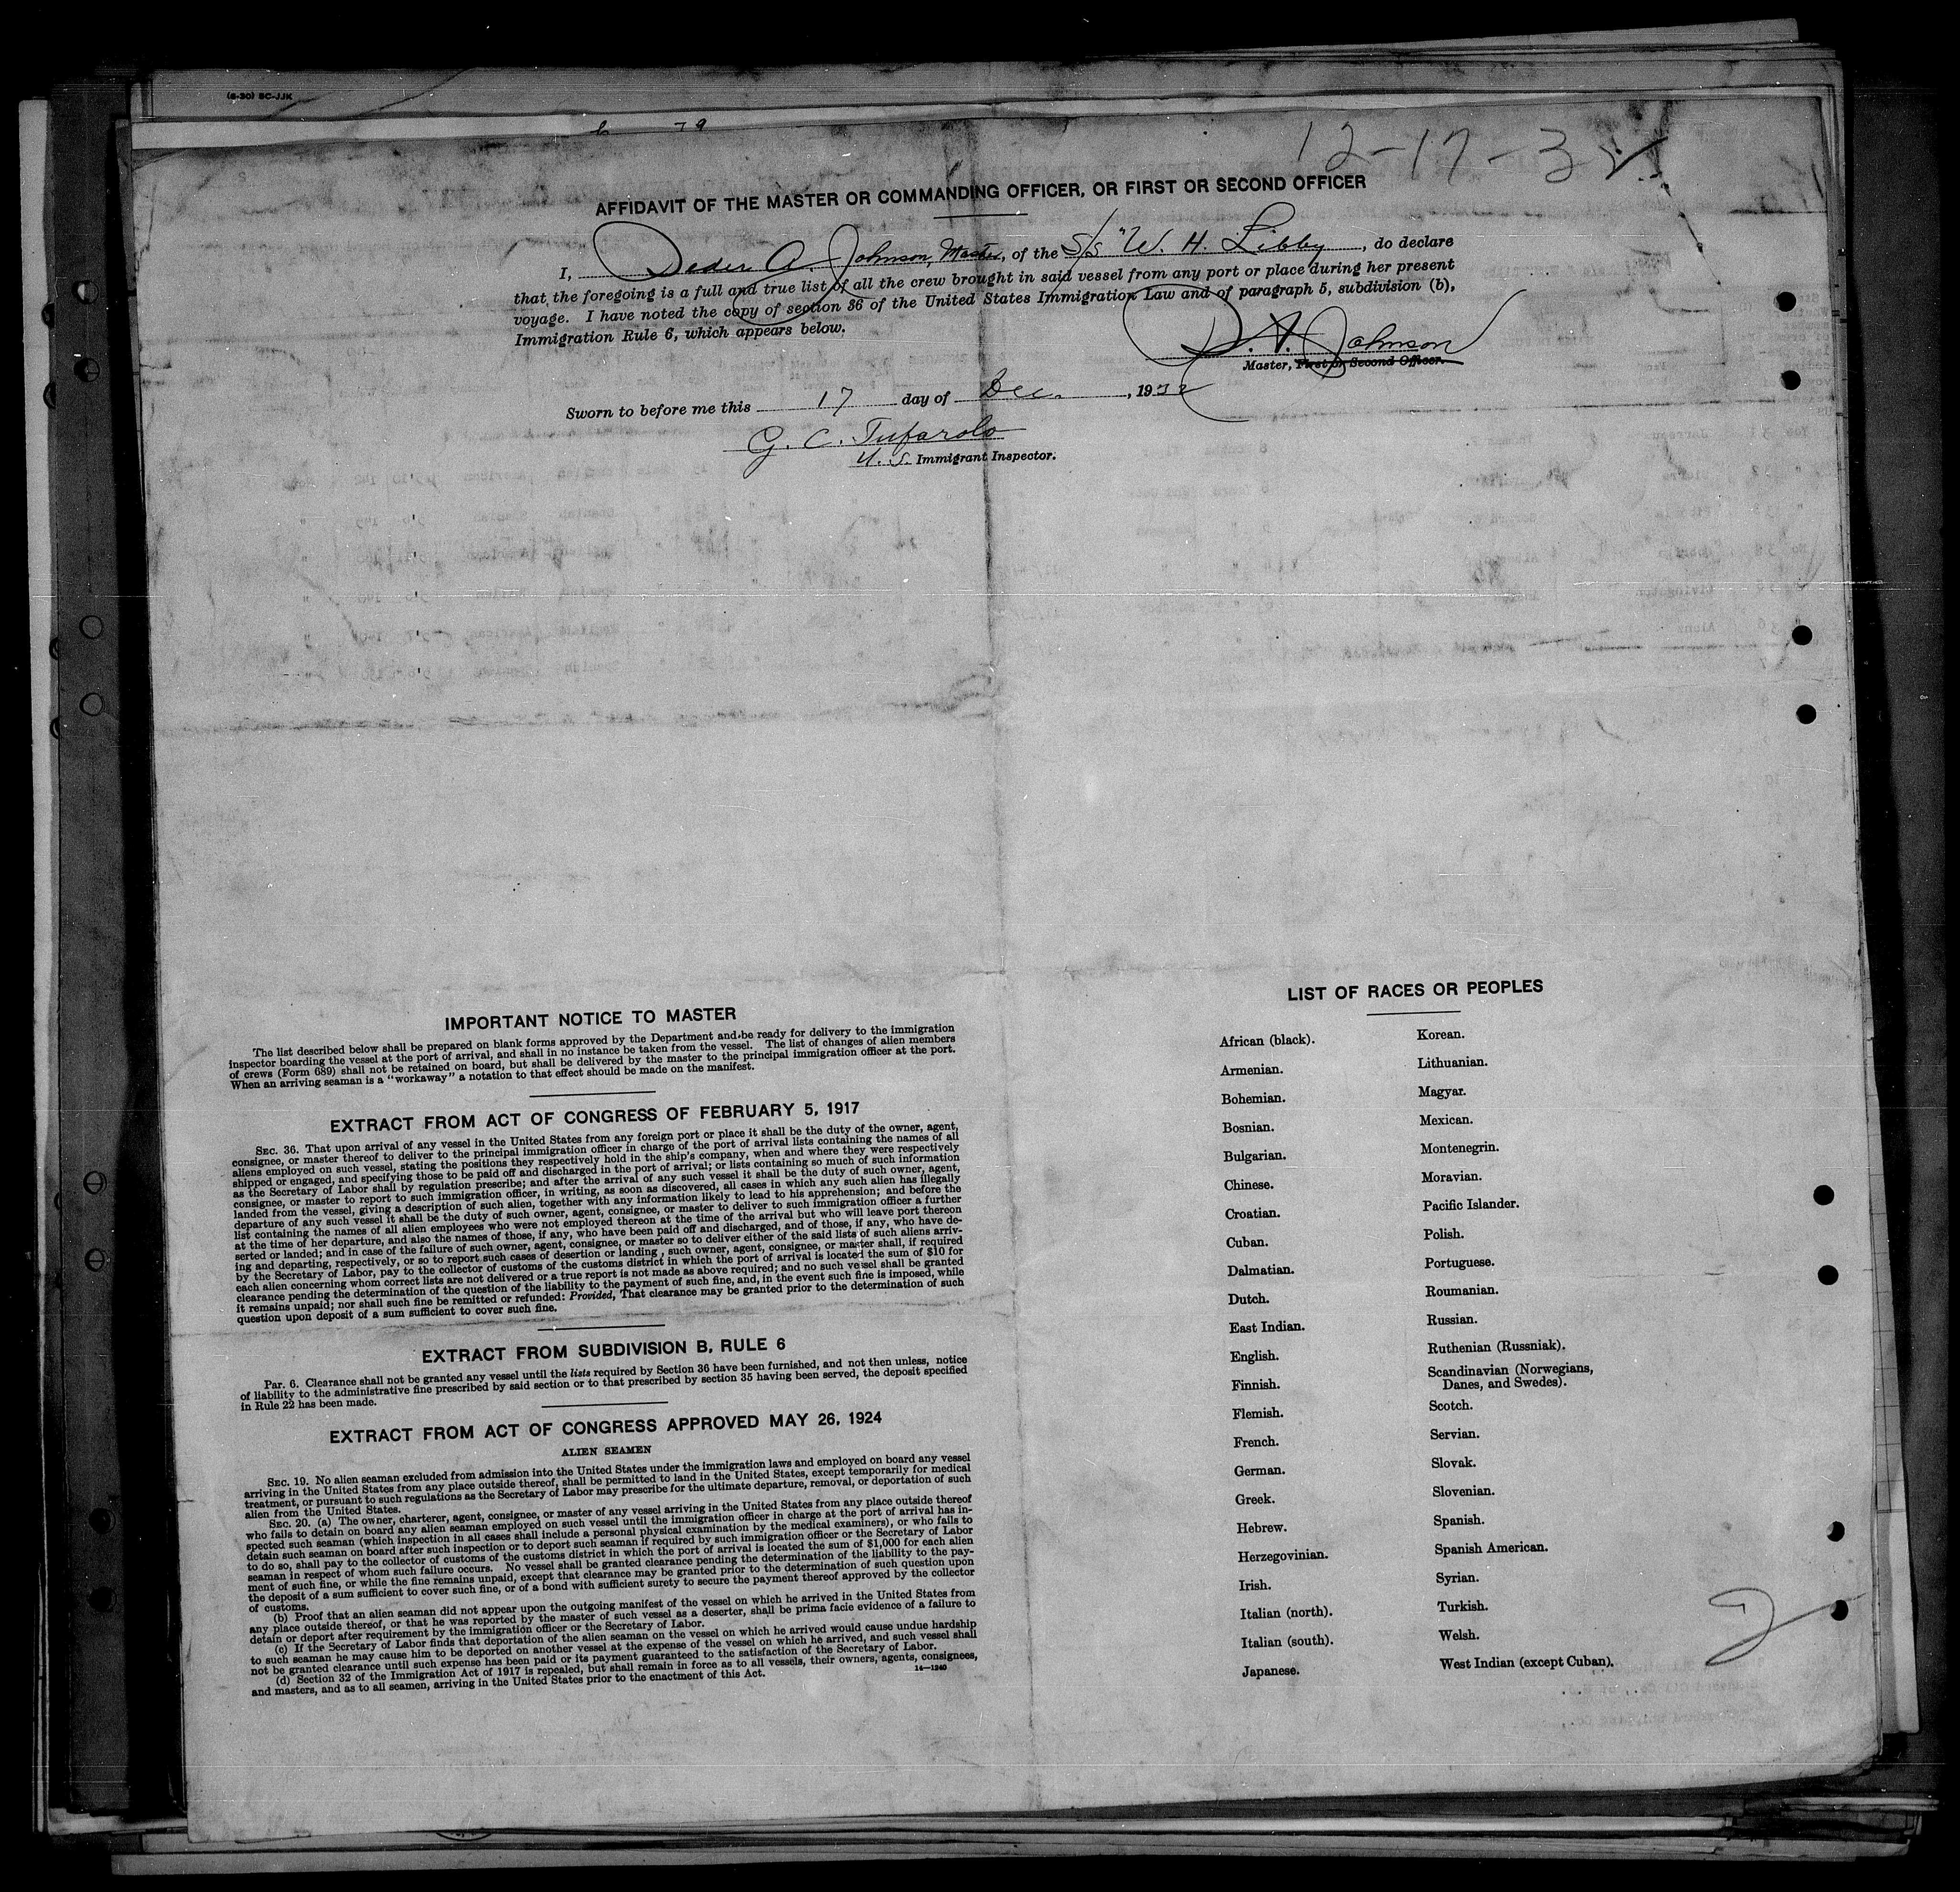 (6-30) SC-JJK
12-17-32
AFFIDAVIT OF THE MASTER OR COMMANDING OFFICER, OR FIRST OR SECOND OFFICER
I, A. Johnson, Master, of the S/S "W. H. Libby, do declare
that the foregoing is a full and true list of all the crew brought in said vessel from any port or place during her present
voyage. I have noted the copy of section 36 of the United States Immigration Law and of paragraph 5, subdivision (b),
Immigration Rule 6, which appears below.
D. A. Johnson
Master, First or Second Officer.
Sworn to before me this 17 day of Dec., 1932
G. C. Tufarolo
U. S. Immigrant Inspector.
IMPORTANT NOTICE TO MASTER
The list described below shall be prepared on blank forms approved by the Department and be ready for delivery to the immigration
inspector boarding the vessel at the port of arrival, and shall in no instance be taken from the vessel. The list of changes of alien members
of crews (Form 689) shall not be retained on board, but shall be delivered by the master to the principal immigration officer at the port.
When an arriving seaman is a "workaway" a notation to that effect should be made on the manifest.
EXTRACT FROM ACT OF CONGRESS OF FEBRUARY 5, 1917
SEC. 36. That upon arrival of any vessel in the United States from any foreign port or place it shall be the duty of the owner, agent,
consignee, or master thereof to deliver to the principal immigration officer in charge of the port of arrival lists containing the names of all
aliens employed on such vessel, stating the positions they respectively hold in the ship's company, when and where they were respectively
shipped or engaged, and specifying those to be paid off and discharged in the port of arrival; or lists containing so much of such information
as the Secretary of Labor shall by regulation prescribe; and after the arrival of any such vessel it shall be the duty of such owner, agent,
consignee, or master to report to such immigration officer, in writing, as soon as discovered, all cases in which any such alien has illegally
landed from the vessel, giving a description of such alien, together with any information likely to lead to his apprehension; and before the
departure of any such vessel it shall be the duty of such owner, agent, consignee, or master to deliver to such immigration officer a further
list containing the names of all alien employees who were not employed thereon at the time of the arrival but who will leave port thereon
at the time of her departure, and also the names of those, if any, who have been paid off and discharged, and of those, if any, who have de-
serted or landed; and in case of the failure of such owner, agent, consignee, or master so to deliver either of the said lists of such aliens arriv-
ing and departing, respectively, or so to report such cases of desertion or landing, such owner, agent, consignee, or master shall, if required
by the Secretary of Labor, pay to the collector of customs of the customs district in which the port of arrival is located the sum of $10 for
each alien concerning whom correct lists are not delivered or a true report is not made as above required; and no such vessel shall be granted
clearance pending the determination of the question of the liability to the payment of such fine, and, in the event such fine is imposed, while
it remains unpaid; nor shall such fine be remitted or refunded: Provided, That clearance may be granted prior to the determination of such
question upon deposit of a sum sufficient to cover such fine.
EXTRACT FROM SUBDIVISION B, RULE 6
Par. 6. Clearance shall not be granted any vessel until the lists required by Section 36 have been furnished, and not then unless, notice
of liability to the administrative fine prescribed by said section or to that prescribed by section 35 having been served, the deposit specified
in Rule 22 has been made.
EXTRACT FROM ACT OF CONGRESS APPROVED MAY 26, 1924
ALIEN SEAMEN
SEC. 19. No alien seaman excluded from admission into the United States under the immigration laws and employed on board any vessel
arriving in the United States from any place outside thereof, shall be permitted to land in the United States, except temporarily for medical
treatment, or pursuant to such regulations as the Secretary of Labor may prescribe for the ultimate departure, removal, or deportation of such
alien from the United States.
SEC. 20. (a) The owner, charterer, agent, consignee, or master of any vessel arriving in the United States from any place outside thereof
who fails to detain on board any alien seaman employed on such vessel until the immigration officer in charge at the port of arrival has in-
spected such seaman (which inspection in all cases shall include a personal physical examination by the medical examiners), or who fails to
detain such seaman on board after such inspection or to deport such seaman if required by such immigration officer or the Secretary of Labor
to do so, shall pay to the collector of customs of the customs district in which the port of arrival is located the sum of $1,000 for each alien
seaman in respect of whom such failure occurs. No vessel shall be granted clearance pending the determination of the liability to the pay-
ment of such fine, or while the fine remains unpaid, except that clearance may be granted prior to the determination of such question upon
the deposit of a sum sufficient to cover such fine, or of a bond with sufficient surety to secure the payment thereof approved by the collector
of customs.
(b) Proof that an alien seaman did not appear upon the outgoing manifest of the vessel on which he arrived in the United States from
any place outside thereof, or that he was reported by the master of such vessel as a deserter, shall be prima facie evidence of a failure to
detain or deport after requirement by the immigration officer or the Secretary of Labor.
(c) If the Secretary of Labor finds that deportation of the alien seaman on the vessel on which he arrived would cause undue hardship
to such seaman he may cause him to be deported on another vessel at the expense of the vessel on which he arrived, and such vessel shall
not be granted clearance until such expense has been paid or its payment guaranteed to the satisfaction of the Secretary of Labor.
(d) Section 32 of the Immigration Act of 1917 is repealed, but shall remain in force as to all vessels, their owners, agents, consignees,
and masters, and as to all seamen, arriving in the United States prior to the enactment of this Act.
14—1240
LIST OF RACES OR PEOPLES
African (black).
Armenian.
Bohemian.
Bosnian.
Bulgarian.
Chinese.
Croatian.
Cuban.
Dalmatian.
Dutch.
East Indian.
English.
Finnish.
Flemish.
French.
German.
Greek.
Hebrew.
Herzegovinian.
Irish.
Italian (north).
Italian (south).
Japanese.
Korean.
Lithuanian.
Magyar.
Mexican.
Montenegrin.
Moravian.
Pacific Islander.
Polish.
Portuguese.
Roumanian.
Russian.
Ruthenian (Russniak).
Scandinavian (Norwegians,
Danes, and Swedes).
Scotch.
Servian.
Slovak.
Slovenian.
Spanish.
Spanish American.
Syrian.
Turkish.
Welsh.
West Indian (except Cuban).
2